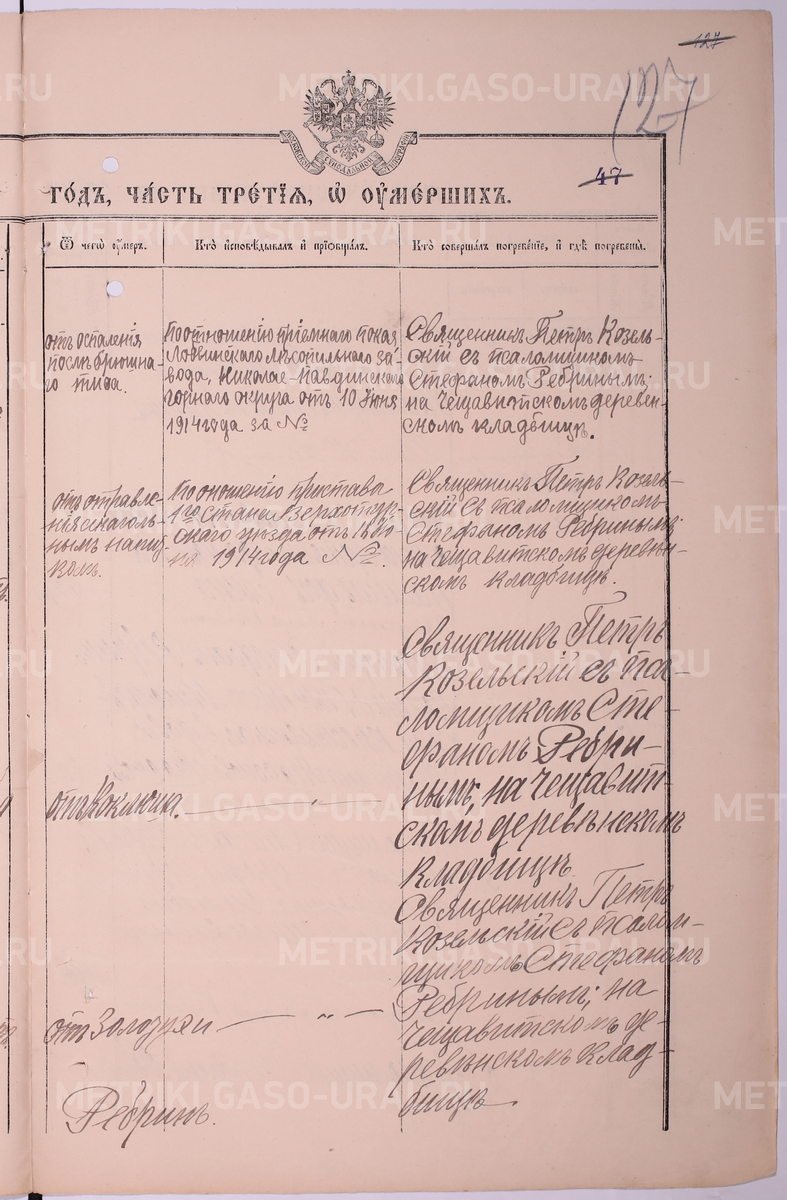 127
127
МОСКОВСКОЙ СѴНОДАЛЬНОЙ ТИПОГРАФІИ
47
го́дъ, ча́сть тре́тїѧ, ѡ҆ ᲂу҆ме́ршихъ.
Ѿ чегѡ̀ ᲂу҆́меръ.
Кто̀ и҆сповѣ́дывалъ и҆ прїѡбща́лъ.
Кто̀ соверша́лъ погребе́нїе, и҆ гдѣ̀ погребены̀.
отъ оспаленія
послѣ брюшна-
го тифа.
По отношенію пріемнаго покоя
Лобвинскаго лѣсопильнаго за-
вода, Николае-Павдинскаго
горнаго округа отъ 10 Іюня
1914 года за №
Священникъ Петръ Козель-
скій съ псаломщикомъ
Стефаномъ Ребринымъ;
на Чещавитскомъ деревен-
скомъ кладбищѣ.
отъ отравле-
нія
нымъ напит-
комъ.
По отношенію пристава
1го стана Верхотур-
скаго уѣзда отъ
1914 года №
Священникъ Петръ Козель-
скій съ псаломщикомъ
Стефаномъ Ребринымъ;
на Чещавитскомъ деревен-
скомъ кладбищѣ.
отъ коклюша. — " —
Священникъ Петръ
Козельскій съ пса-
ломщикомъ Сте-
фаномъ Ребри-
нымъ, на Чещавит-
скомъ деревенскомъ
кладбищѣ.
отъ Золотухи — " —
Священникъ Петръ
Козельскій съ псалом-
щикомъ Стефаномъ
Ребринымъ; на
Чещавитскомъ де-
ревенскомъ клад-
бищѣ.
Ребринъ.
METRIKI.GASO-URAL.RU